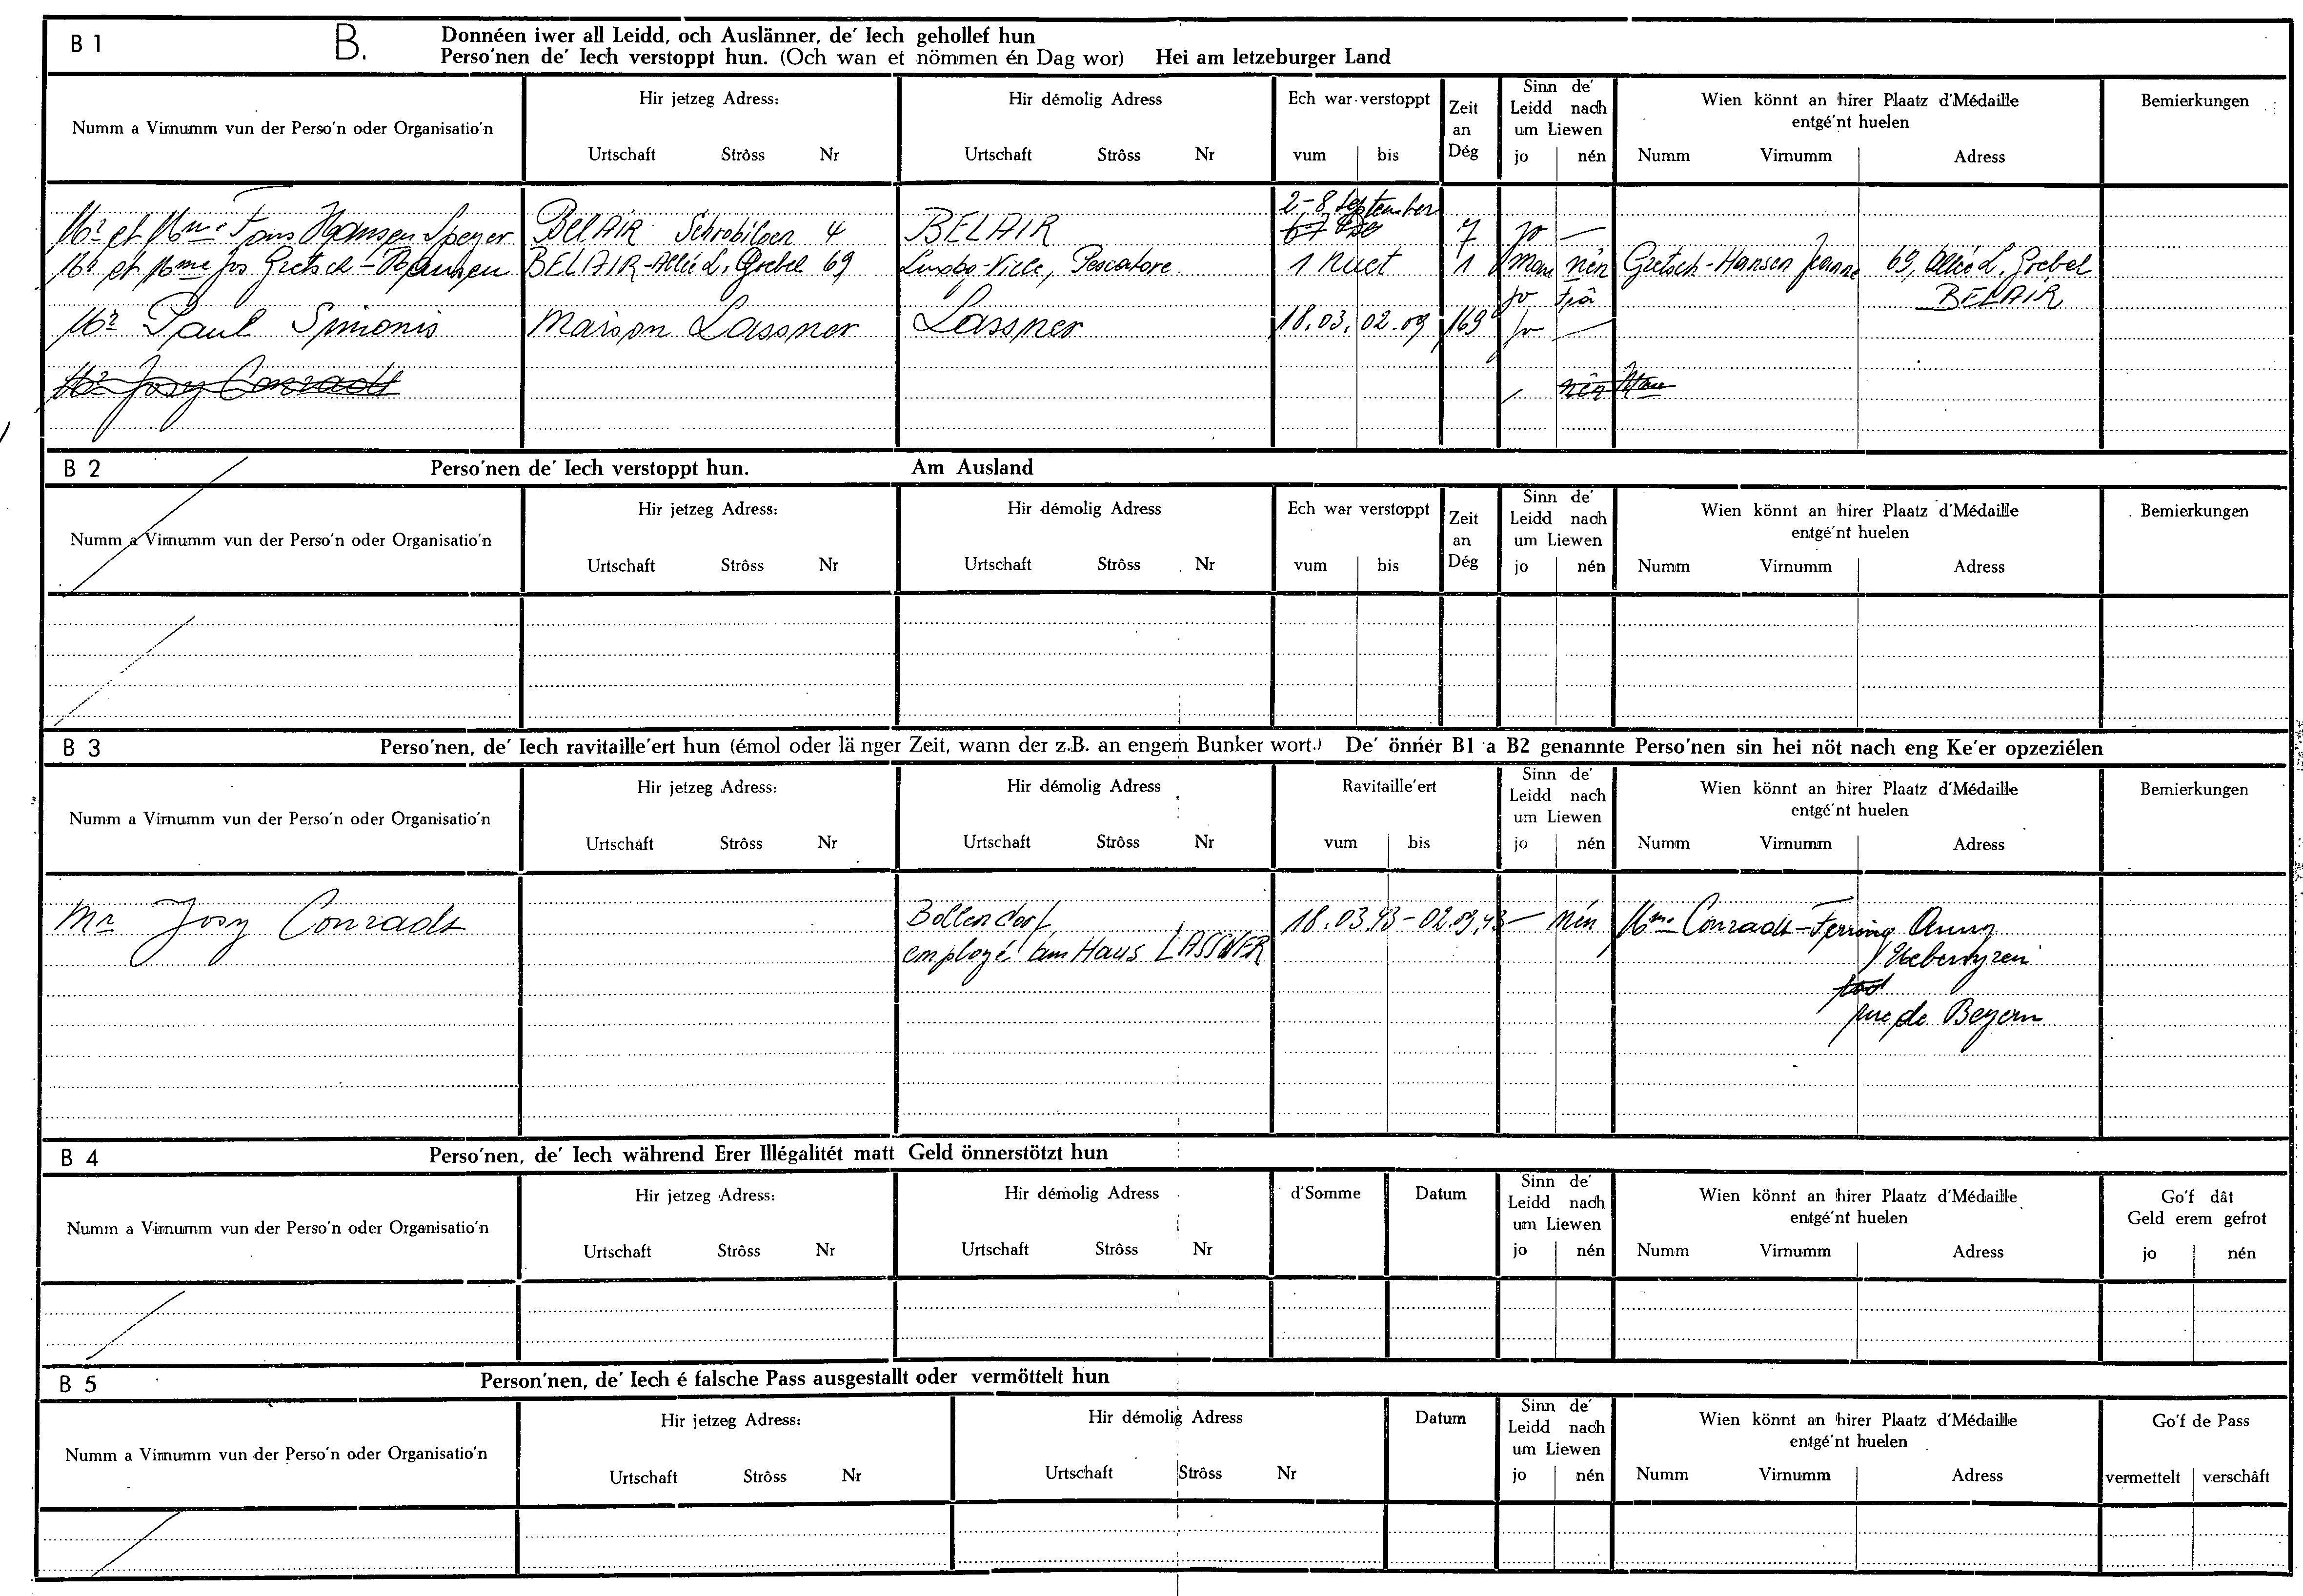 B 1 B. Donnéen iwer all Leidd, och Auslänner, de' Iech gehollef hun
Perso'nen de' Iech verstoppt hun. (Och wan et nömmen én Dag wor) Hei am letzeburger Land
Numm a Virnumm vun der Perso'n oder Organisatio'n Hir jetzeg Adress: Hir démolig Adress Ech war verstoppt Zeit an Dég Sinn de' Leidd nach um Liewen Wien könnt an hirer Plaatz d'Médaille entgé'nt huelen Bemierkungen
Urtschaft Strôss Nr Urtschaft Strôss Nr vum bis jo nén Numm Virnumm Adresse
2-8 September
Mr et Mme Fons Hansen Speyer BelAIR Schrobilgen 4 BELAIR 7 jo —
Mr et Mme Jos Gretsch-Hansen BELAIR-Allée L. Goebel 69 Luxbg-Ville, Pescatore 1 Nuet 1 Man nén Gretsch-Hansen Jeanne 69, Allée L. Goebel
jo frâ BELAIR
Mr Paul Simonis Maison Lassner Lassner 18.03. 02.09 169 jo —
Mr Josy Conradt nén Mme
B 2 Perso'nen de' Iech verstoppt hun. Am Ausland
Numm a Virnumm vun der Perso'n oder Organisatio'n Hir jetzeg Adress: Hir démolig Adress Ech war verstoppt Zeit an Dég Sinn de' Leidd nach um Liewen Wien könnt an hirer Plaatz d'Médaille entgé'nt huelen Bemierkungen
Urtschaft Strôss Nr Urtschaft Strôss Nr vum bis jo nén Numm Virnumm Adress
B 3 Perso'nen, de' Iech ravitaille'ert hun (émol oder länger Zeit, wann der z.B. an engem Bunker wort.) De' önnér B1 a B2 genannte Perso'nen sin hei nöt nach eng Ke'er opzeziélen
Numm a Virnumm vun der Perso'n oder Organisatio'n Hir jetzeg Adress: Hir démolig Adress Ravitaille'ert Sinn de' Leidd nach um Liewen Wien könnt an hirer Plaatz d'Médaille entgé'nt huelen Bemierkungen
Urtschaft Strôss Nr Urtschaft Strôss Nr vum bis jo nén Numm Virnumm Adress
Mr Josy Conradt Bollendorf 18.03.43 - 02.09.43 — nén Mme Conradt-Ferring Anny
employé am Haus LASSNER
rue de Beyern
B 4 Perso'nen, de' Iech während Erer Illégalitét matt Geld önnerstötzt hun
Numm a Virnumm vun der Perso'n oder Organisatio'n Hir jetzeg Adress: Hir démolig Adress d'Somme Datum Sinn de' Leidd nach um Liewen Wien könnt an hirer Plaatz d'Médaille entgé'nt huelen Go'f dât Geld erem gefrot
Urtschaft Strôss Nr Urtschaft Strôss Nr jo nén Numm Virnumm Adress jo nén
B 5 Person'nen, de' Iech é falsche Pass ausgestallt oder vermöttelt hun
Numm a Virnumm vun der Perso'n oder Organisatio'n Hir jetzeg Adress: Hir démolig Adress Datum Sinn de' Leidd nach um Liewen Wien könnt an hirer Plaatz d'Médaille entgé'nt huelen Go'f de Pass
Urtschaft Strôss Nr Urtschaft Strôss Nr jo nén Numm Virnumm Adress vermettelt verschâft